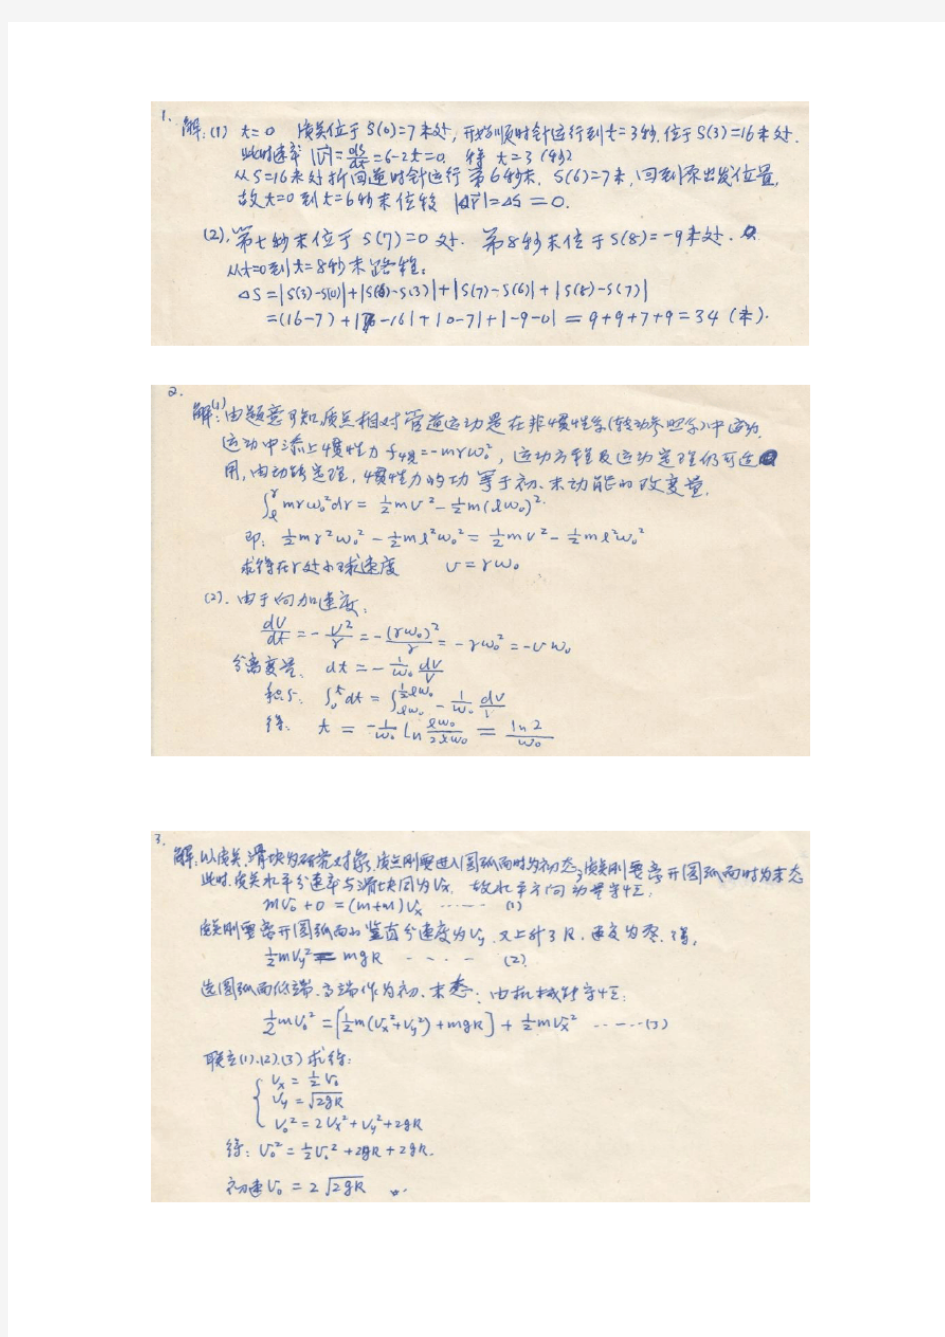 1.
解:(1) t=0 质点位于S(0)=7米处,开始顺时针运行到t=3秒,位于S(3)=16米处.
此时速率 |V⃗|=ds/dt=6-2t=0. 得 t=3(秒)
从S=16米处折回逆时针运行第6秒末. S(6)=7米,回到原出发位置,
故t=0到t=6秒末位移 |Δr⃗|=ΔS=0.
(2). 第七秒末位于S(7)=0处. 第8秒末位于S(8)=-9米处.
从t=0到t=8秒末路程:
ΔS=|S(3)-S(0)|+|S(6)-S(3)|+|S(7)-S(6)|+|S(8)-S(7)|
=(16-7)+|7-16|+|0-7|+|-9-0|=9+9+7+9=34(米).
2.
解:(1) 由题意可知,质点相对管道运动是在非惯性系(转动参照系)中运动,
运动中添上惯性力f惯=-mrω₀², 运动方程及运动定理仍可适
用,由动能定理,惯性力的功等于初、末动能的改变量.
∫ₗʳ mrω₀²dr=½mv²-½m(lω₀)².
即: ½mr²ω₀²-½ml²ω₀²=½mv²-½ml²ω₀²
求得在r处小球速度 v=rω₀
(2). 由于向加速度:
dv/dt=-v²/r=-(rω₀)²/r=-rω₀²=-vω₀
分离变量. dt=-1/ω₀ dv/v
积分: ∫₀ᵗdt=∫_{lω₀}^{½lω₀} -1/ω₀ dv/v
得: t=-1/ω₀ ln lω₀/2lω₀=ln2/ω₀
3.
解:以质点、滑块为研究对象,质点刚要进入圆弧面时为初态,质点刚要离开圆弧面时为末态
此时,质点水平分速率与滑块同为Vx, 故水平方向动量守恒.
mV₀+0=(m+m)Vx ······ (1)
质点刚要离开圆弧面的竖直分速度为Vy, 又上升了R,速度为零.
½mVy²=mgR - - - - (2).
选圆弧面低端、高端作为初、末态: 由机械能守恒:
½mV₀²=[½m(Vx²+Vy²)+mgR]+½mVx² ······(3)
联立(1).(2).(3)求得:
Vx=½V₀
Vy=√2gR
V₀²=2Vx²+Vy²+2gR
得: V₀²=½V₀²+2gR+2gR.
初速V₀=2√2gR